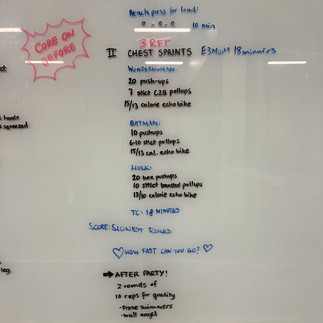 Bench press for load:
8 - 8 - 8
10 min
CORE ON
BEFORE
3 REF
II CHEST SPRINTS E3MOM 18 minutes
WONDERWOMAN:
20 push-ups
7 strict C2B pullups
15/13 calorie echo bike
BATMAN:
10 pushups
6-10 strict pullups
15/13 cal. echo bike
HULK:
20 box pushups
10 strict banded pullups
13/10 calorie echo bike
TC: 18 MINUTES
SCORE: SLOWEST ROUND
HOW FAST CAN YOU GO?
AFTER PARTY!
2 rounds of
10 reps for quality
- Prone swimmers
- wall angel
leg